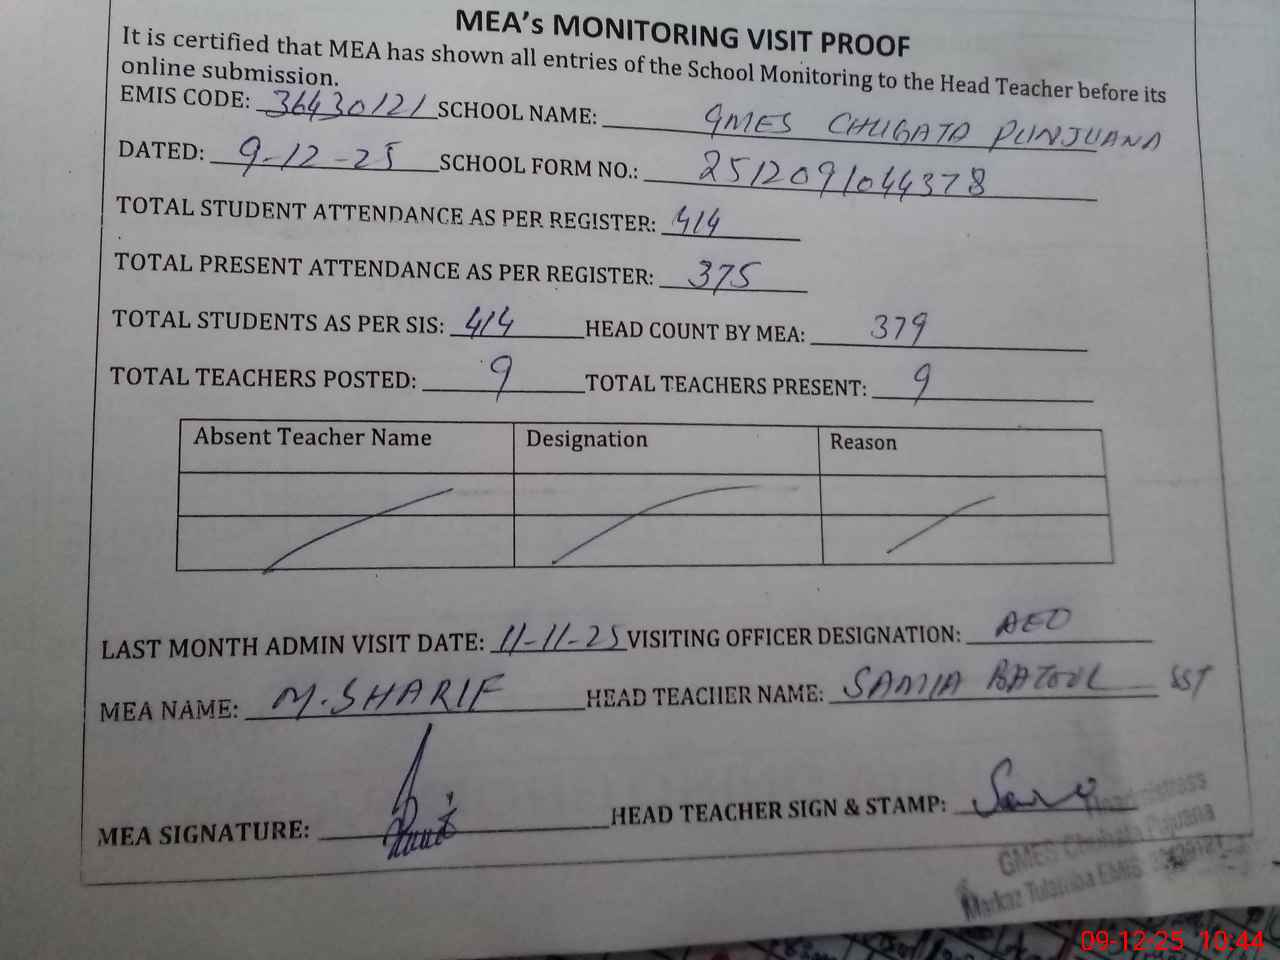 MEA's MONITORING VISIT PROOF
It is certified that MEA has shown all entries of the School Monitoring to the Head Teacher before its
online submission.
EMIS CODE: 36430121 SCHOOL NAME: GMES CHUGATA PUNJUANA
DATED: 9-12-25 SCHOOL FORM NO.: 2512091044378
TOTAL STUDENT ATTENDANCE AS PER REGISTER: 414
TOTAL PRESENT ATTENDANCE AS PER REGISTER: 375
TOTAL STUDENTS AS PER SIS: 414 HEAD COUNT BY MEA: 379
TOTAL TEACHERS POSTED: 9 TOTAL TEACHERS PRESENT: 9
Absent Teacher Name Designation Reason
LAST MONTH ADMIN VISIT DATE: 11-11-25 VISITING OFFICER DESIGNATION: AEO
MEA NAME: M.SHARIF HEAD TEACHER NAME: SAMIA BATOOL SST
MEA SIGNATURE: HEAD TEACHER SIGN & STAMP:
Headmistress
GMES
Markaz Tulamba EMIS
09-12-25 10:44